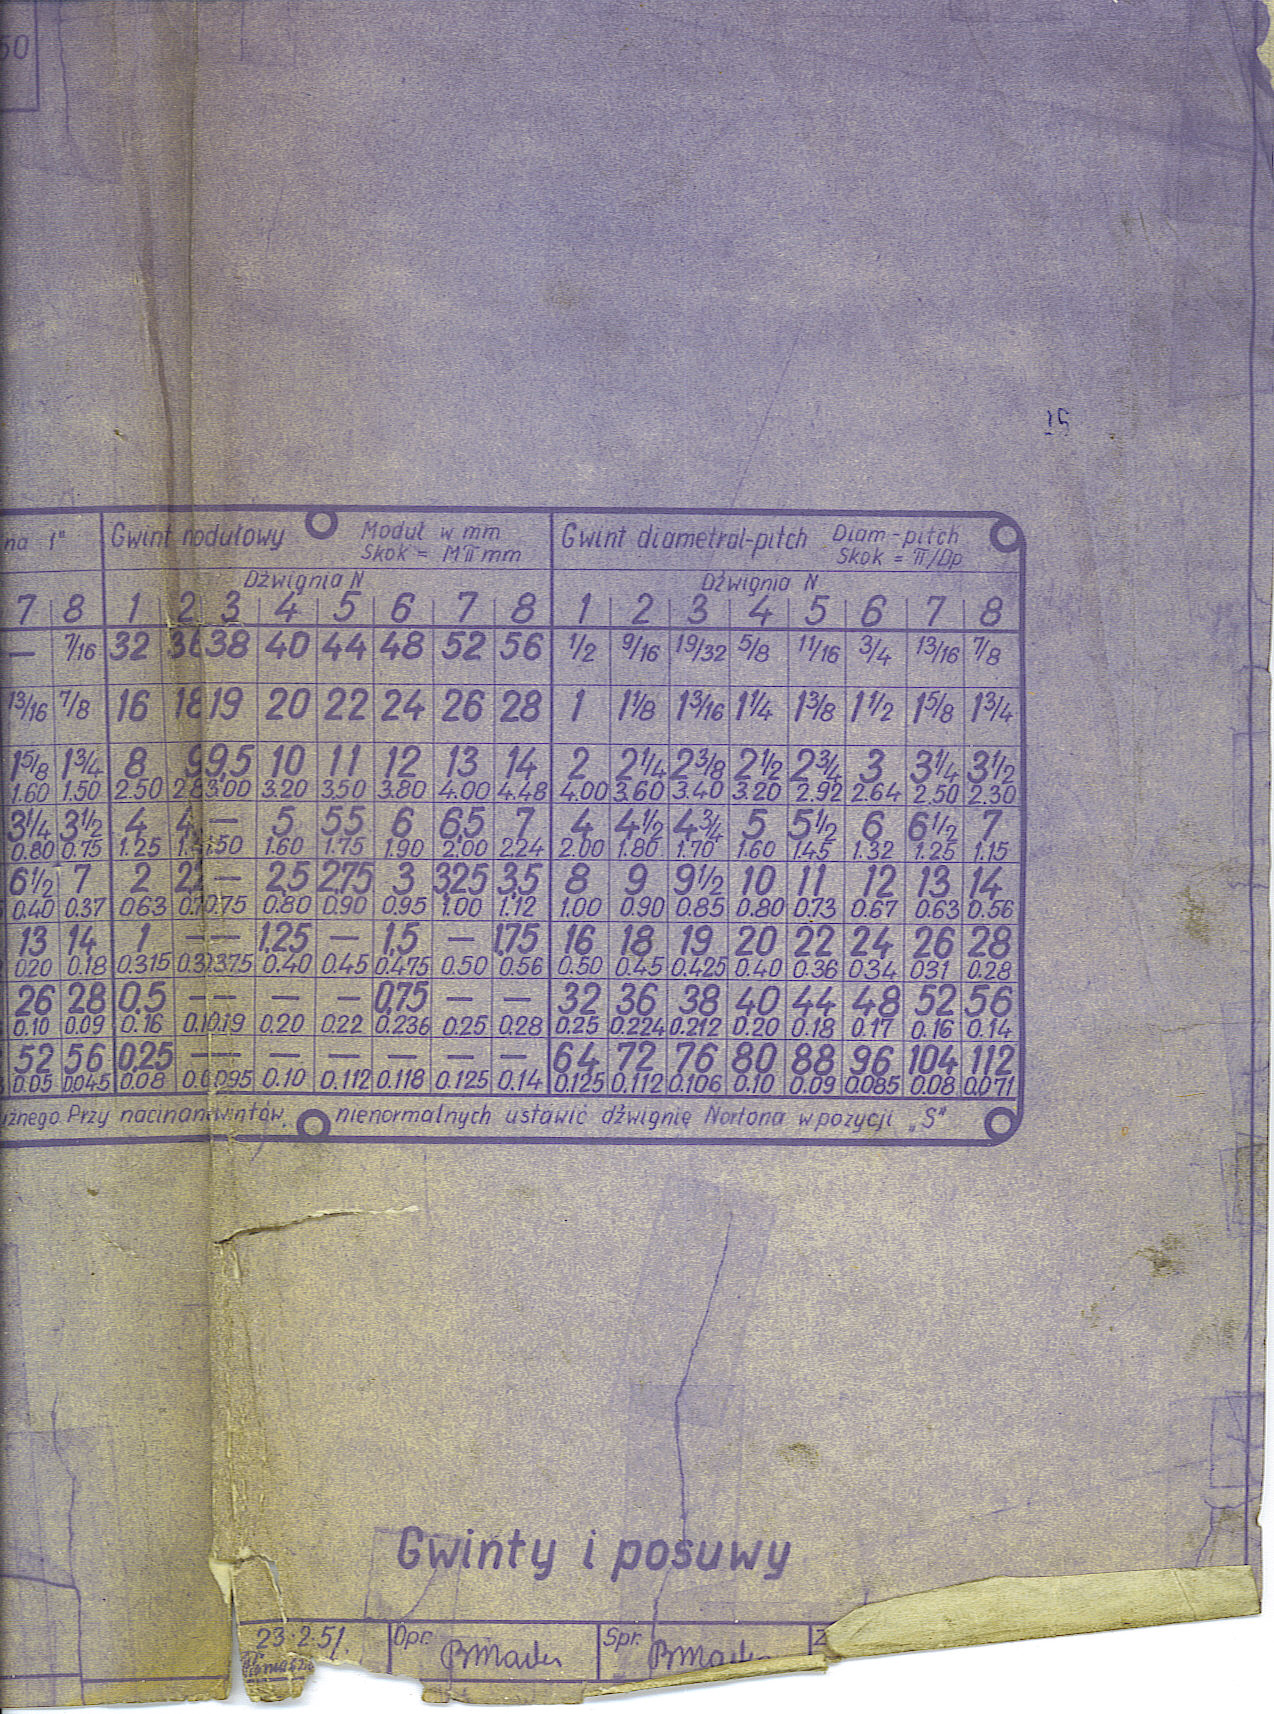 50
15
na 1" Gwint modułowy Moduł w mm Gwint diametral-pitch Diam-pitch
Skok = Mπ mm Skok = π/Dp
Dźwignia N Dźwignia N
7 8 1 2 3 4 5 6 7 8 1 2 3 4 5 6 7 8
— 7/16 32 36 38 40 44 48 52 56 1/2 9/16 19/32 5/8 11/16 3/4 13/16 7/8
13/16 7/8 16 18 19 20 22 24 26 28 1 1 1/8 1 3/16 1 1/4 1 3/8 1 1/2 1 5/8 1 3/4
1 5/8 1 3/4 8 9 9,5 10 11 12 13 14 2 2 1/4 2 3/8 2 1/2 2 3/4 3 3 1/4 3 1/2
1.60 1.50 2.50 2.8 3.00 3.20 3.50 3.80 4.00 4.48 4.00 3.60 3.40 3.20 2.92 2.64 2.50 2.30
3 1/4 3 1/2 4 4, — 5 5,5 6 6,5 7 4 4 1/2 4 3/4 5 5 1/2 6 6 1/2 7
0.80 0.75 1.25 1.4 1.50 1.60 1.75 1.90 2.00 2.24 2.00 1.80 1.70 1.60 1.45 1.32 1.25 1.15
6 1/2 7 2 2,2 — 2,5 2,75 3 3,25 3,5 8 9 9 1/2 10 11 12 13 14
0.40 0.37 0.63 0.7 0.75 0.80 0.90 0.95 1.00 1.12 1.00 0.90 0.85 0.80 0.73 0.67 0.63 0.56
13 14 1 — — 1,25 — 1,5 — 1,75 16 18 19 20 22 24 26 28
0.20 0.18 0.315 0.3 0.375 0.40 0.45 0.475 0.50 0.56 0.50 0.45 0.425 0.40 0.36 0.34 0.31 0.28
26 28 0,5 — — — — 0,75 — — 32 36 38 40 44 48 52 56
0.10 0.09 0.16 0.1 0.19 0.20 0.22 0.236 0.25 0.28 0.25 0.224 0.212 0.20 0.18 0.17 0.16 0.14
52 56 0,25 — — — — — — — 64 72 76 80 88 96 104 112
0.05 0.045 0.08 0.0 0.095 0.10 0.112 0.118 0.125 0.14 0.125 0.112 0.106 0.10 0.09 0.085 0.08 0.071
użnego. Przy nacinan wintów, nienormalnych ustawić dźwignię Nortona w pozycji „S"
Gwinty i posuwy
23.2.51. Opr. Spr. Z